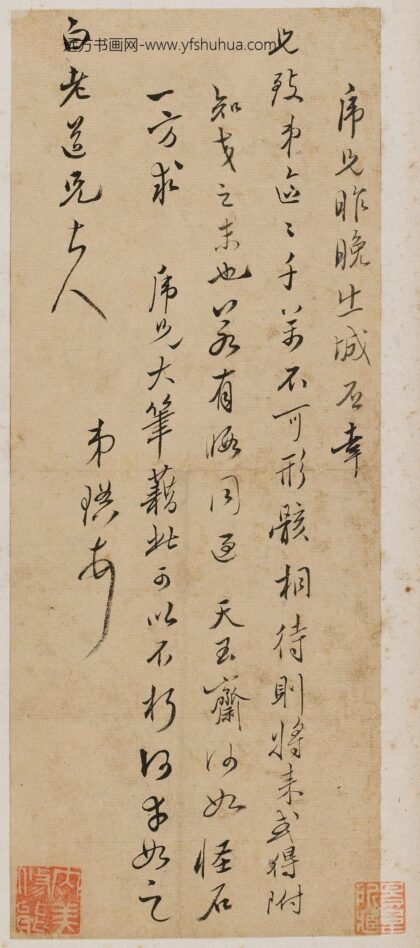 方书画网-www.yfshuhua.com
兄昨晚出城否幸
致弟千萬不可形骸相待則將來或得附
知交之末也若有暇同過天玉齋何如怪石
一方求 兄大筆藉此可以不朽何幸如之
白老道兄大人
弟